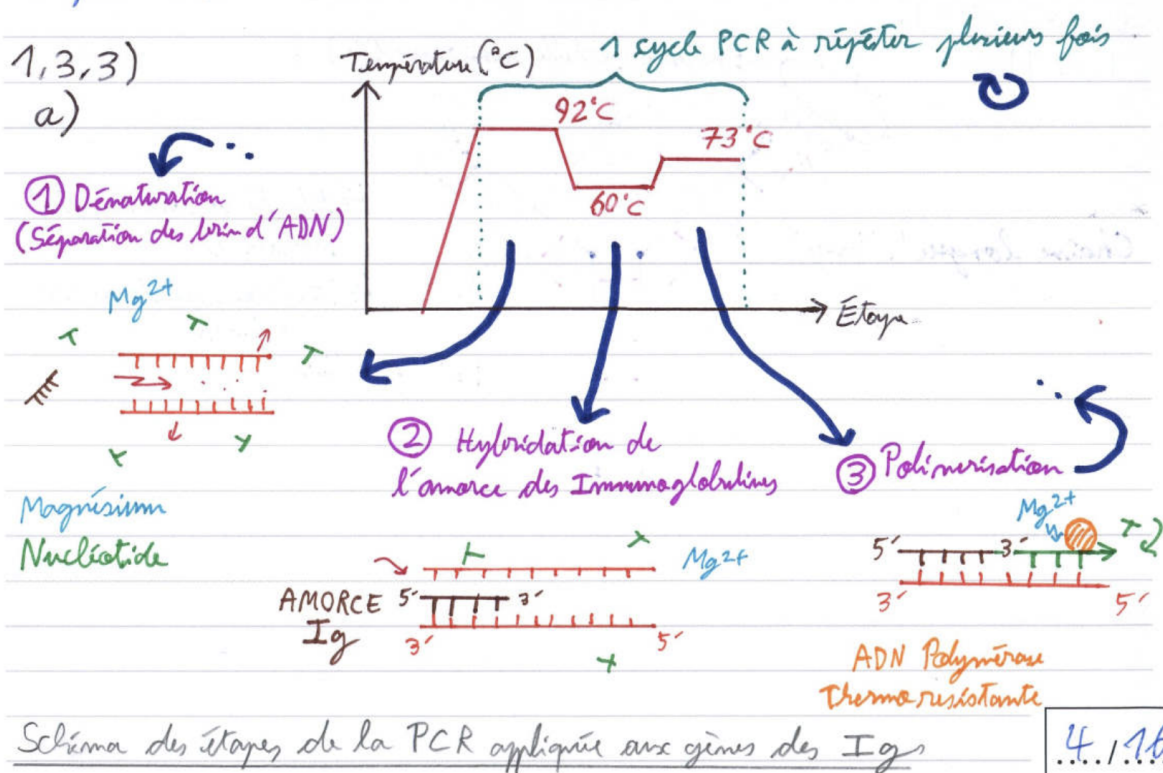 1,3,3)
a)
Température (°C)
1 cycle PCR à répéter plusieurs fois
92°C
73°C
60°C
Étape
① Dénaturation
(Séparation des brin d'ADN)
Mg2+
Magnésium
Nucléotide
② Hybridation de
l'amorce des Immunoglobulines
Mg2+
AMORCE 5' 3'
Ig
3' 5'
③ Polimerisation
Mg2+
5' 3'
3' 5'
ADN Polymérase
Thermoresistante
Schéma des étapes de la PCR appliquée aux gènes des Igs
4/16